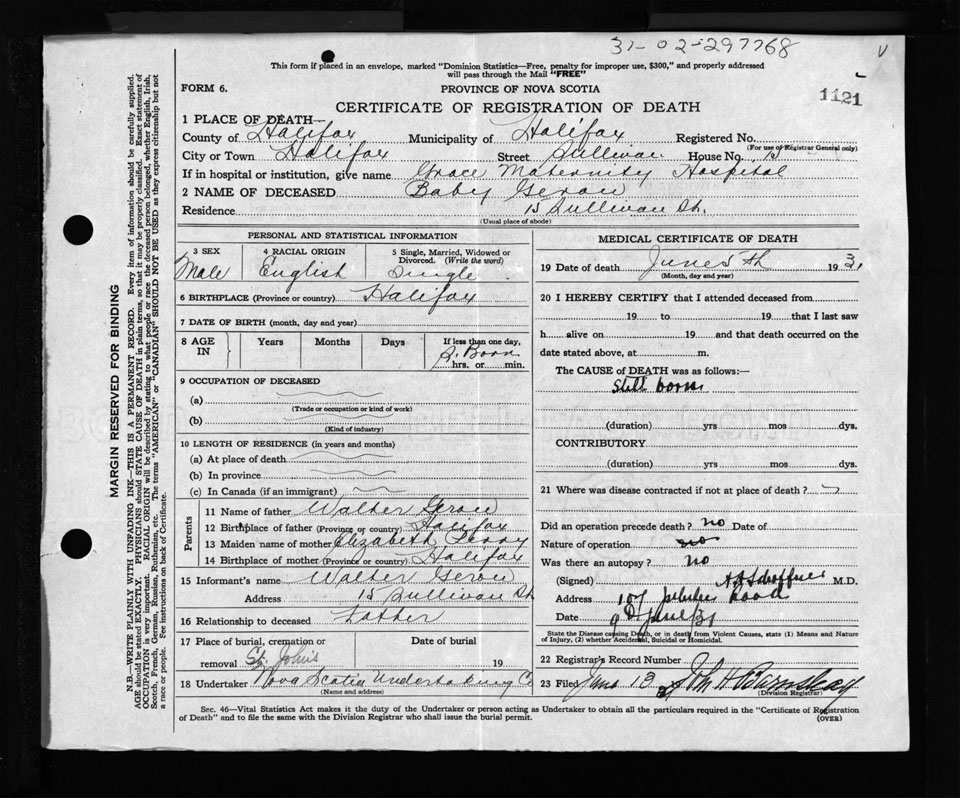 31-02-297768
V
This form if placed in an envelope, marked "Dominion Statistics—Free, penalty for improper use, $300," and properly addressed
will pass through the Mail "FREE"
FORM 6.
PROVINCE OF NOVA SCOTIA
1121
CERTIFICATE OF REGISTRATION OF DEATH
1 PLACE OF DEATH—
County of Halifax Municipality of Halifax Registered No.
(For use of Registrar General only)
City or Town Halifax Street Sullivan House No. 15
If in hospital or institution, give name Grace Maternity Hospital
2 NAME OF DECEASED Baby Gerou
Residence 15 Sullivan St.
(Usual place of abode)
PERSONAL AND STATISTICAL INFORMATION
3 SEX 4 RACIAL ORIGIN 5 Single, Married, Widowed or
Divorced. (Write the word)
Male English Single
6 BIRTHPLACE (Province or country) Halifax
7 DATE OF BIRTH (month, day and year)
8 AGE Years Months Days If less than one day,
IN S. Born
hrs. or min.
9 OCCUPATION OF DECEASED
(a)
(Trade or occupation or kind of work)
(b)
(Kind of industry)
10 LENGTH OF RESIDENCE (in years and months)
(a) At place of death
(b) In province
(c) In Canada (if an immigrant)
Parents
11 Name of father Walter Gerou
12 Birthplace of father (Province or country) Halifax
13 Maiden name of mother Elizabeth Perry
14 Birthplace of mother (Province or country) Halifax
15 Informant's name Walter Gerou
Address 15 Sullivan St
16 Relationship to deceased Father
17 Place of burial, cremation or Date of burial
removal St. John's 19
18 Undertaker Nova Scotia Undertaking Co
(Name and address)
MEDICAL CERTIFICATE OF DEATH
19 Date of death June 5th 1931
(Month, day and year)
20 I HEREBY CERTIFY that I attended deceased from
19 to 19 that I last saw
h alive on 19 and that death occurred on the
date stated above, at m.
The CAUSE of DEATH was as follows:—
Still born
(duration) yrs mos dys.
CONTRIBUTORY
(duration) yrs mos dys.
21 Where was disease contracted if not at place of death?
Did an operation precede death? no Date of
Nature of operation no
Was there an autopsy? no
(Signed) M.D.
Address 107 Road
Date 9 June/31
State the Disease causing Death, or in death from Violent Causes, state (1) Means and Nature
of Injury, (2) whether Accidental, Suicidal or Homicidal.
22 Registrar's Record Number
23 Filed June 13
(Division Registrar)
Sec. 46—Vital Statistics Act makes it the duty of the Undertaker or person acting as Undertaker to obtain all the particulars required in the "Certificate of Registration
of Death" and to file the same with the Division Registrar who shall issue the burial permit.
(OVER)
MARGIN RESERVED FOR BINDING
N.B.—WRITE PLAINLY WITH UNFADING INK—THIS IS A PERMANENT RECORD. Every item of information should be carefully supplied.
AGE should be stated EXACTLY. PHYSICIANS should STATE CAUSE OF DEATH in plain terms, so that it may be properly classified. Exact statement of
OCCUPATION is very important. RACIAL ORIGIN will be described by stating to what people or race the deceased person belonged, whether English, Irish,
Scotch, French, German, Russian, Ruthenian, etc. The terms "AMERICAN" or "CANADIAN" SHOULD NOT BE USED as they express citizenship but not
a race or people. See instructions on back of Certificate.